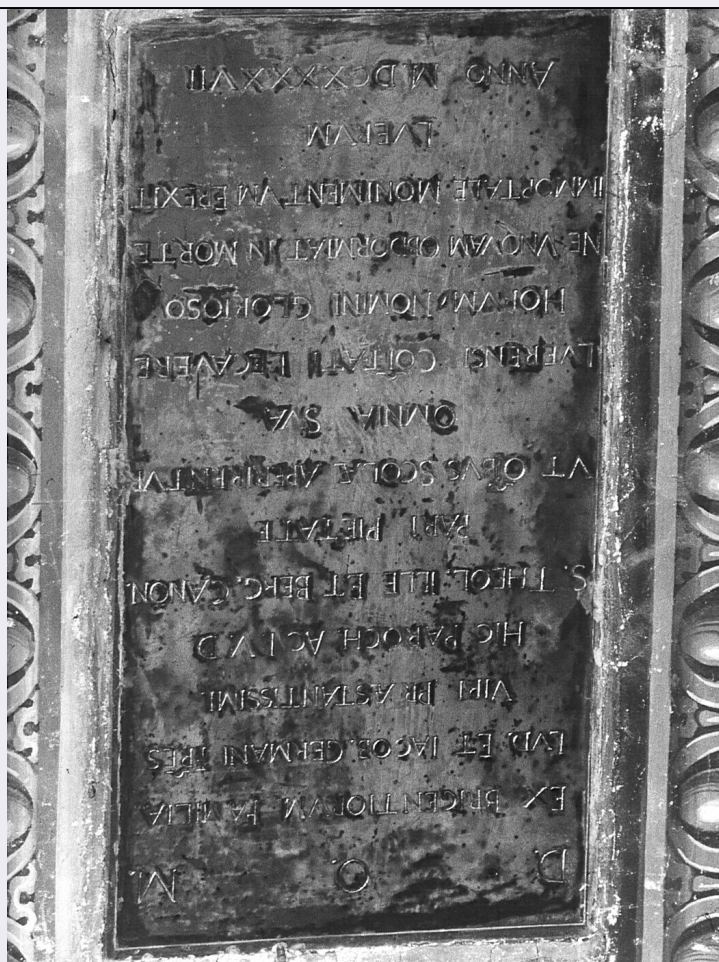 D. O. M.
EX BRIGENTIORVM FAMILIA
LVD. ET IACOB. GERMANI FRES
VIRI PRÆSTANTISSIMI
HIC PAROCH. AC I.V.D.
S. THEOL. ILLE ET BERG. CANON.
PARI PIETATE
VT OIBVS SCOLÆ APERIRENTVR
OMNIA SVA
LVERENSI COITATI LEGAVERE
HORVM NOMINI GLORIOSO
NE VNQVAM OBDORMIAT IN MORTE
IMMORTALE MONIMENTVM EREXIT
LVERVM
ANNO MDCXXXVII